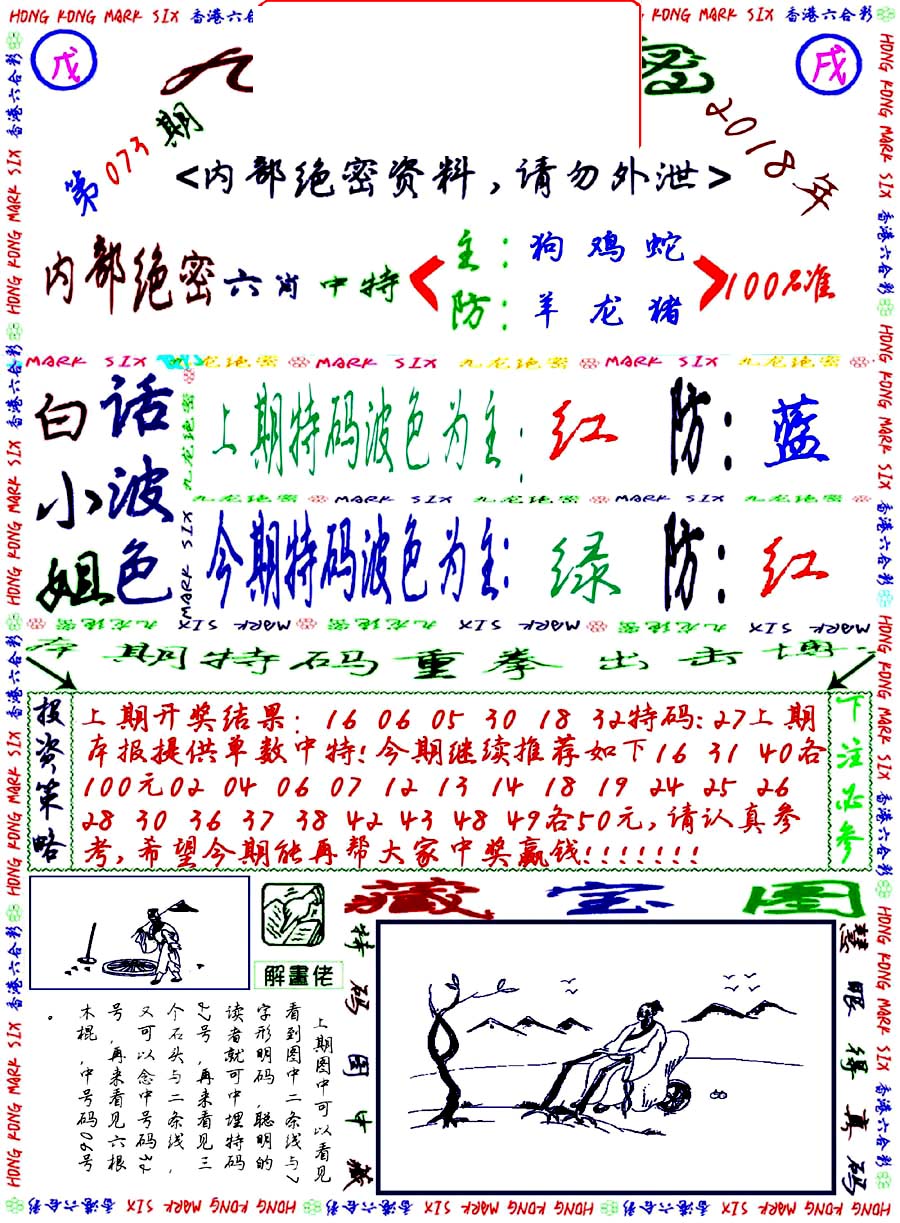 HONG KONG MARK SIX 香港六合彩
KONG MARK SIX 香港六合彩
戊
九
密
戌
第073期
2018年
<内部绝密资料,请勿外泄>
内部绝密六肖中特
主:狗 鸡 蛇
防:羊 龙 猪
100%准
MARK SIX 九龙绝密 MARK SIX 九龙绝密 MARK SIX 九龙绝密
白话
小波
姐色
上期特码波色为主:红 防:蓝
九龙绝密 MARK SIX 九龙绝密 MARK SIX 九龙绝密
今期特码波色为主:绿 防:红
九龙绝密 MARK SIX 九龙绝密 MARK SIX 九龙绝密 MARK SIX
期特码重拳出击博
投资策略
上期开奖结果: 16 06 05 30 18 32特码:27上期
本报提供单数中特!今期继续推荐如下16 31 40各
100元02 04 06 07 12 13 14 18 19 24 25 26
28 30 36 37 38 42 43 48 49各50元,请认真参
考,希望今期能再帮大家中奖赢钱!!!!!!!
下注必参
藏宝图
解畫佬
上期图中可以看见
看到图中二条线与7
字形明码,聪明的
读者就可中埋特码
27号,再来看见三
个石头与二条线,
又可以念中号码32
号,再来看见六根
木棍,中号码06号
。
特码图中藏
慧眼得真码
HONG KONG MARK SIX 香港六合彩